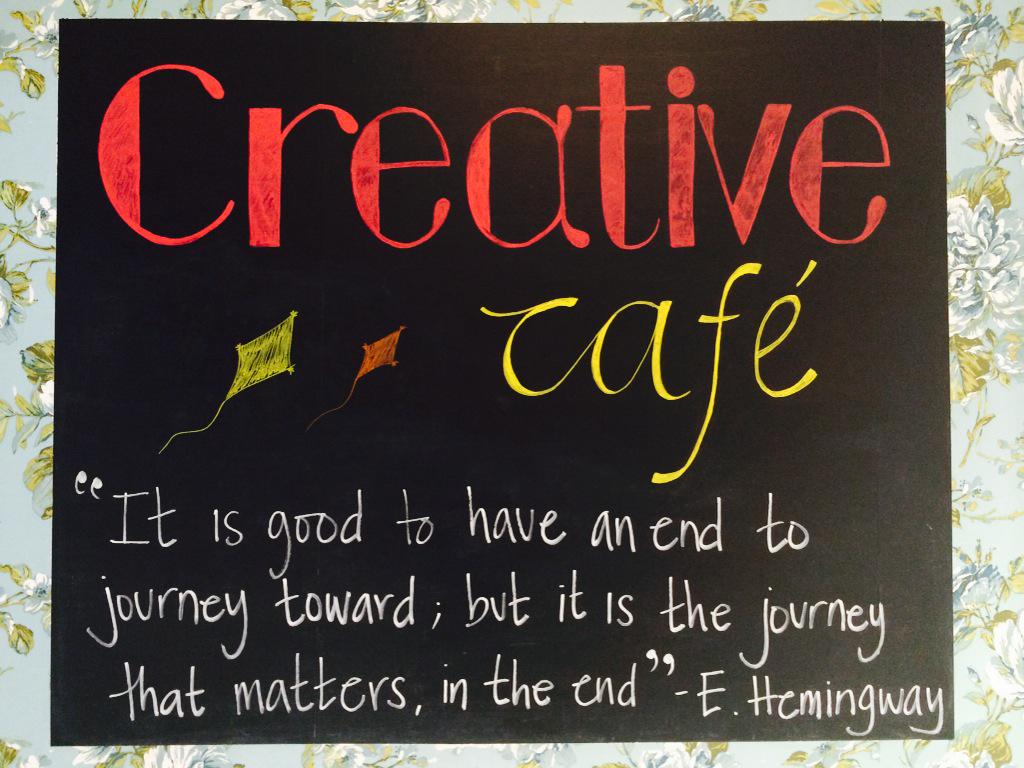 Creative
café
"It is good to have an end to
journey toward; but it is the journey
that matters, in the end" - E. Hemingway